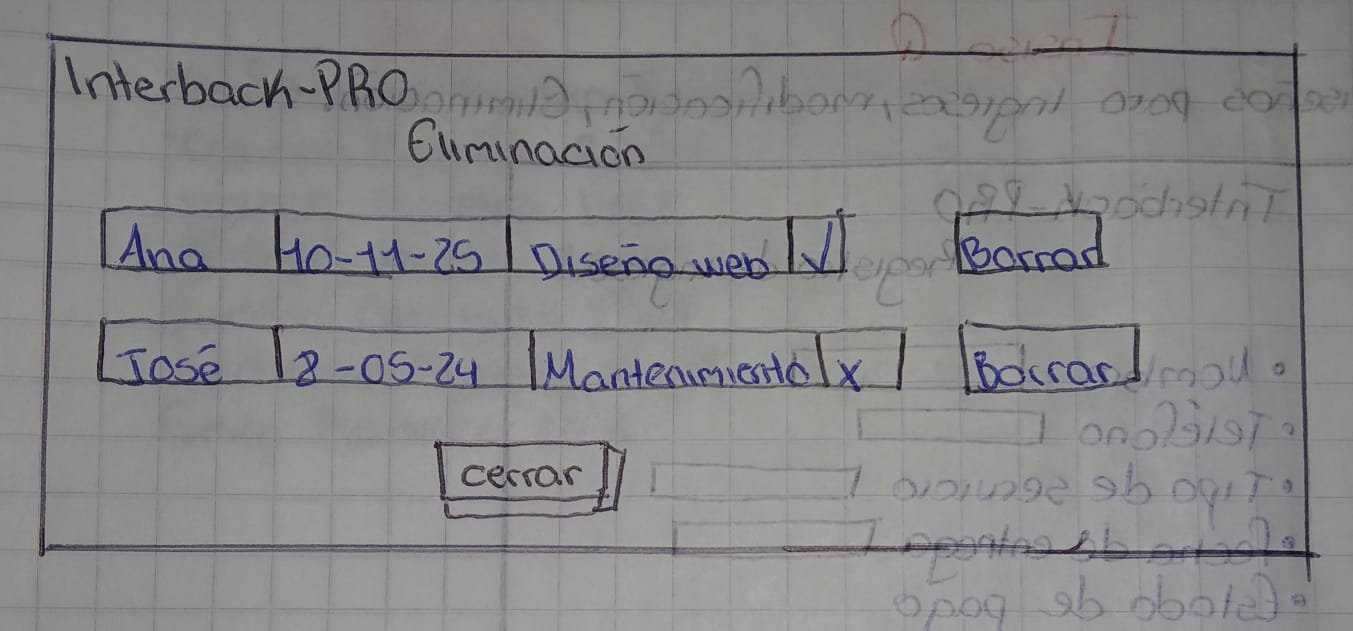 Interback-PRO
Eliminación
Ana 10-11-25 Diseño web √ Borrar
José 8-05-24 Mantenimiento x Borrar
cerrar